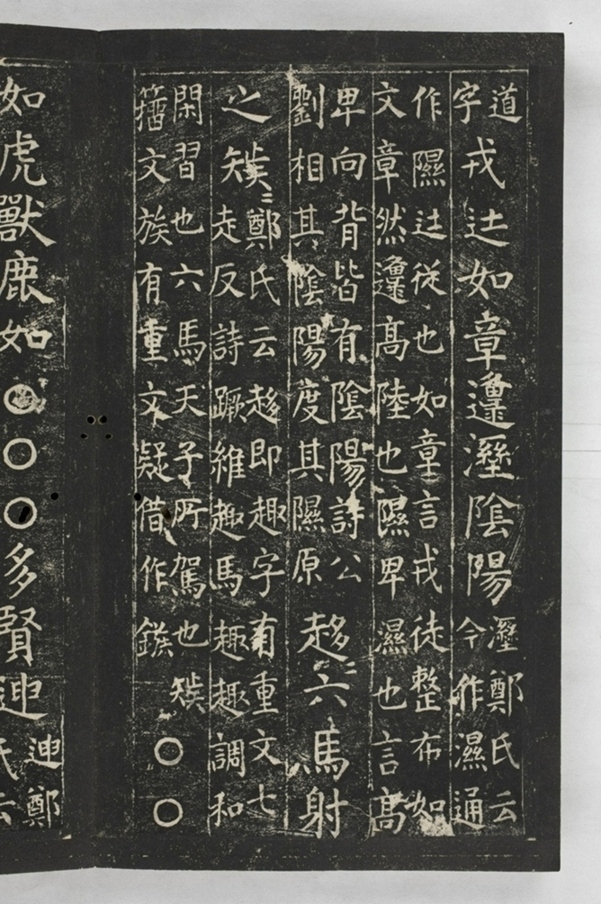 道
字
戎辻如章邍㙷陰陽
㙷鄭氏云
今作濕通
作隰辻從也如章言戎徒整布如
文章然邍高陸也隰卑濕也言高
卑向背皆有陰陽詩公
劉相其陰陽度其隰原
趍〻六馬射
之𥎦〻
鄭氏云趍即趣字有重文七
走反詩蹶維趣馬趣趣調和
閑習也六馬天子所駕也
籀文族有重文疑借作鏃
𥎦〇〇
如虎獸鹿如〇〇〇多賢迧
迧鄭
氏云